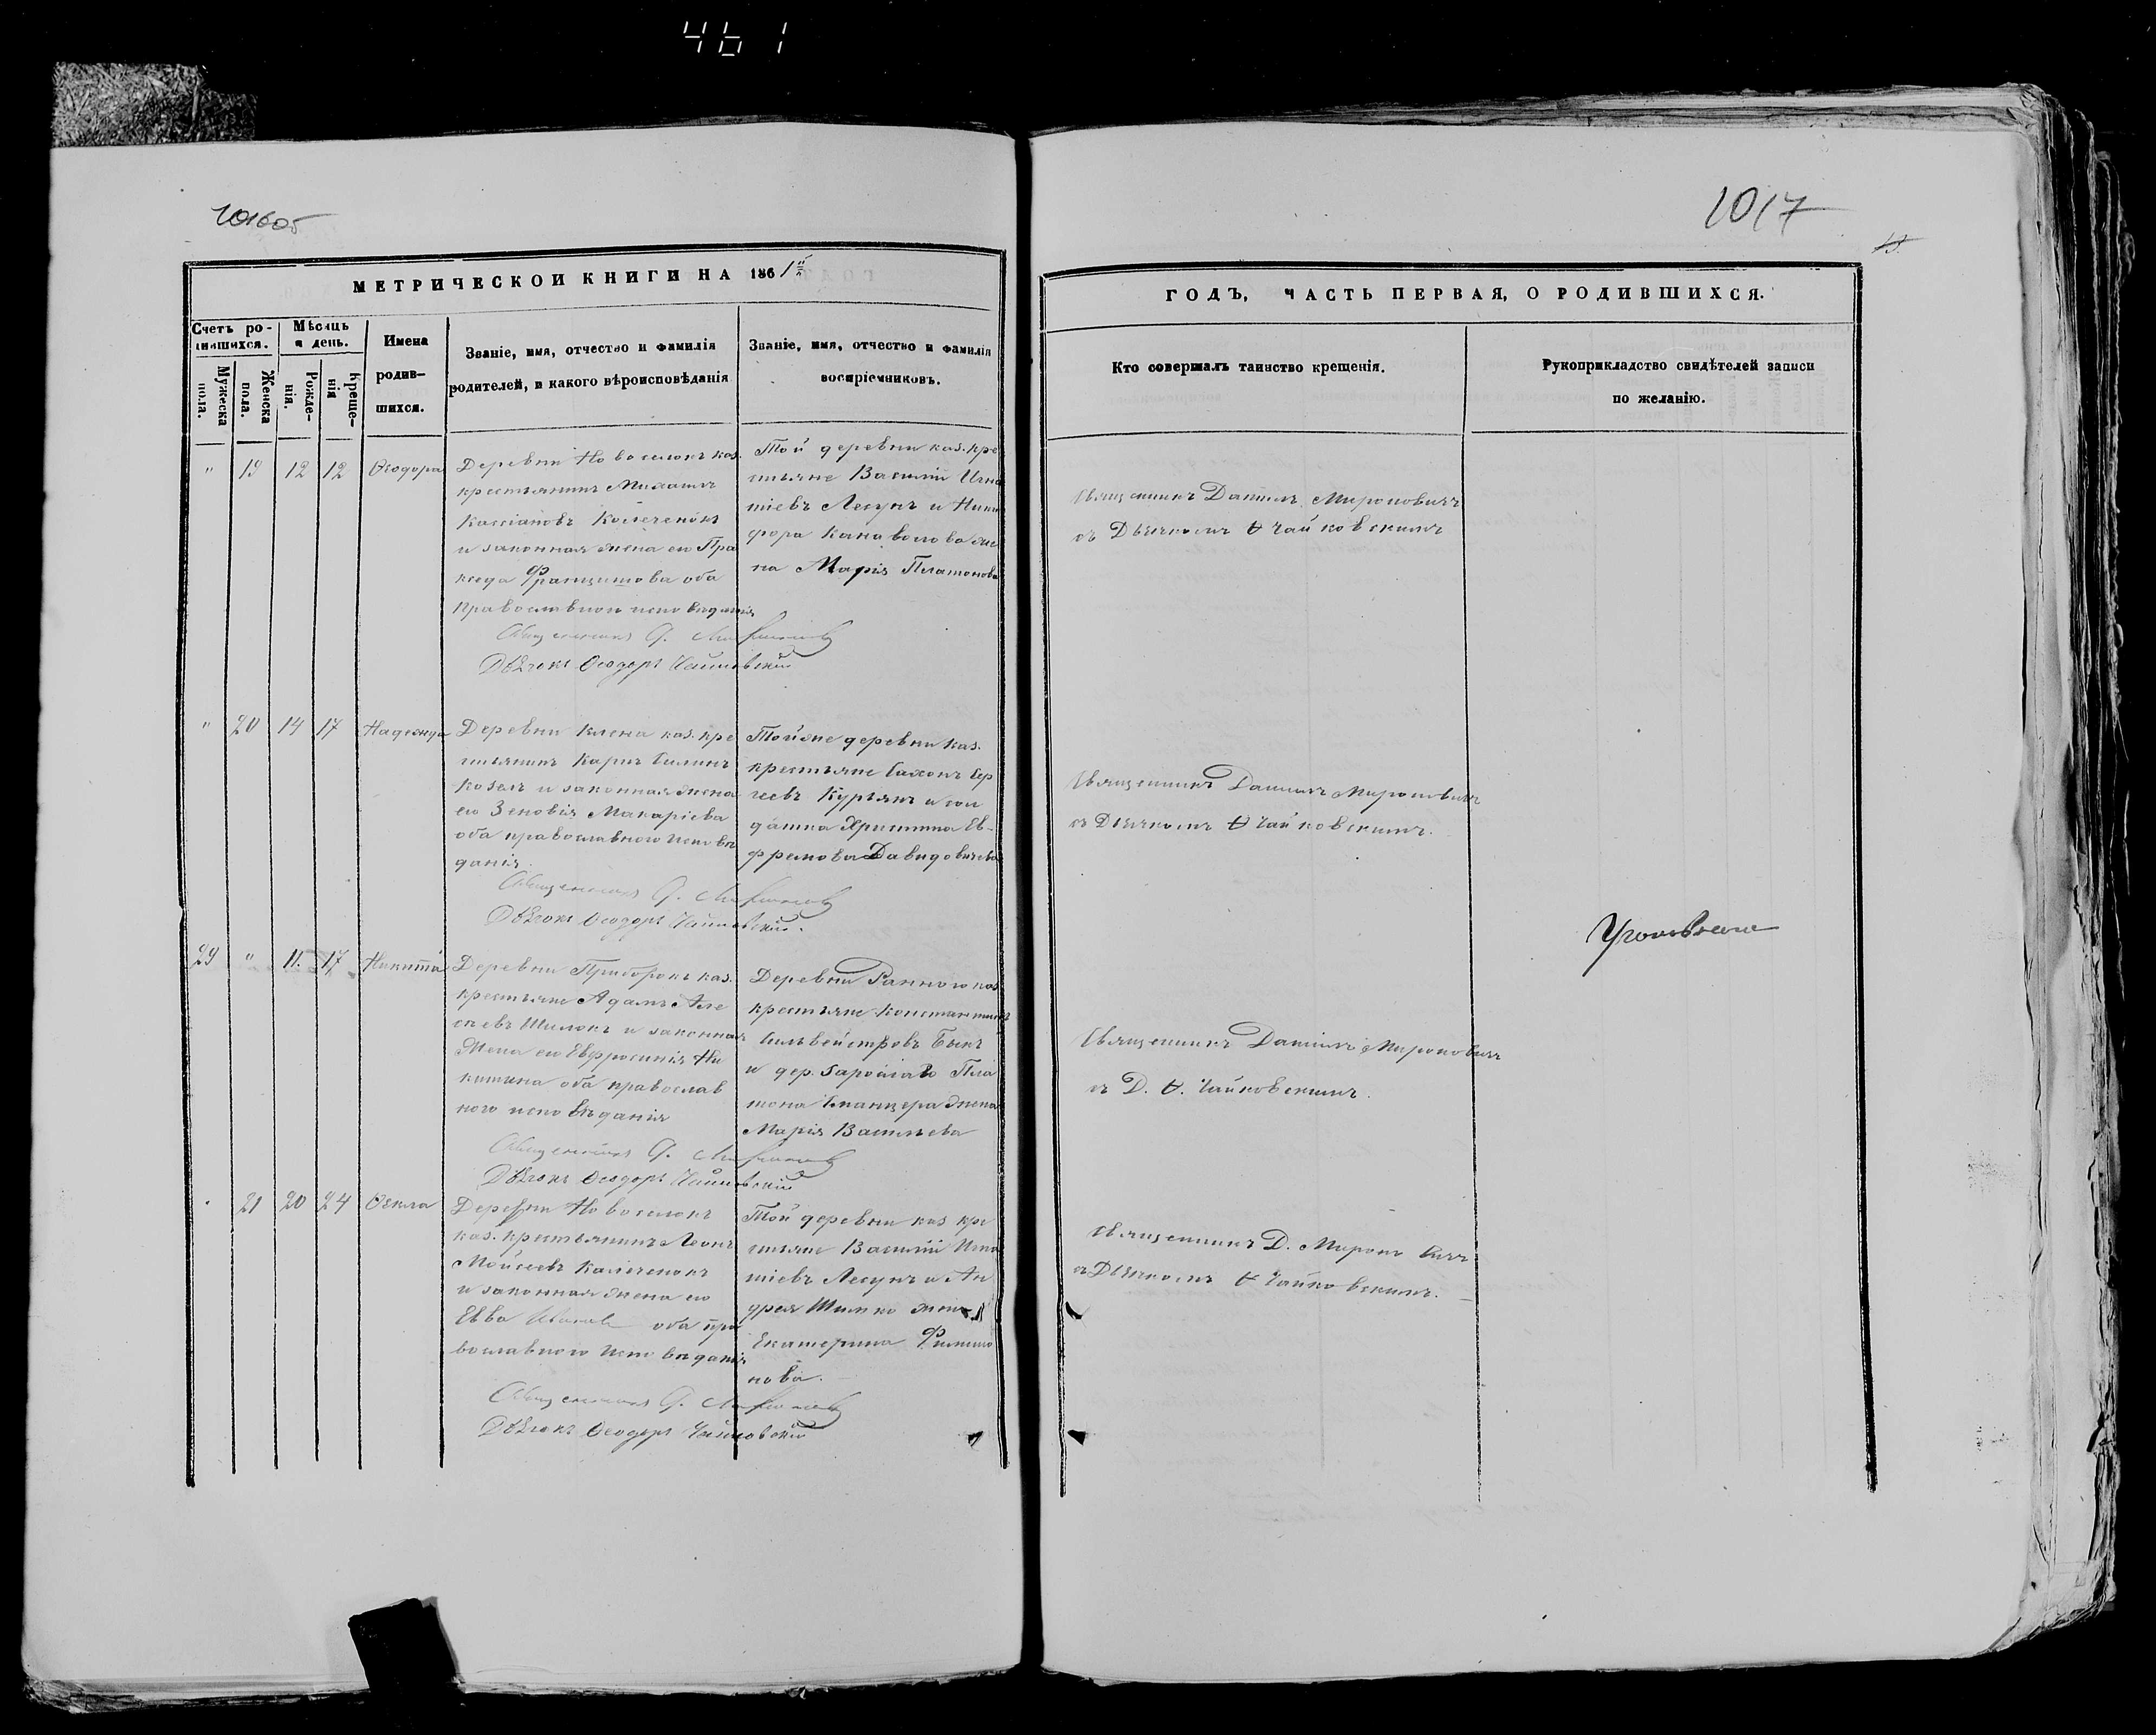 461
101605
1017
МЕТРИЧЕСКОЙ КНИГИ НА 1861й
ГОДЪ, ЧАСТЬ ПЕРВАЯ, О РОДИВШИХСЯ.
Счетъ ро-
дившихся.
Мужеска
пола.
Женска
пола.
Мѣсяцъ
и день.
Рожде-
нія.
Креще-
нія
Имена
родив-
шихся.
Званіе, имя, отчество и фамилія
родителей, и какого вѣроисповѣданія
Званіе, имя, отчество и фамилія
воспріемниковъ.
Кто совершалъ таинство крещенія.
Рукоприкладство свидѣтелей записи
по желанію.
" 19 12 12 Ѳеодора
Деревни Новоселокъ каз.
крестьянинъ Михаилъ
Кассіановъ
и законная жена его Пра
кседа оба
православного исповѣданія
Священникъ
Дьячокъ Ѳеодоръ Чайковскій
Той деревни каз. кре
стьяне Василій Игна
тіевъ Лесунъ и Ники
фора жe
на Марія Платонова
Священникъ Даніилъ Мироновичъ
съ Дьячкомъ Ѳ Чайковскимъ
" 20 14 17 Надежда
Деревни каз. кре
стьянинъ Карпъ
Козелъ и законная жена
его Зеновія Макаріева
оба православного исповѣ
данія
Священникъ
Дьячокъ Ѳеодоръ Чайковскій.
Тойже деревни каз.
крестьяне Сер
геевъ Курьянъ и сол
датка Христина Ев-
фремова Давидовичева
Священникъ Даніилъ Мироновичъ
съ Дьячкомъ Ѳ Чайковскимъ.
29 " 11. 17 Никита
Деревни каз.
крестьяне Адамъ Але
ксѣевъ и законная
жена его Евфросинія Ни
китина оба православ
ного исповѣданія
Священникъ
Дьячокъ Ѳеодоръ Чайковскій
Деревни каз
крестьяне Константинъ
Сильвестровъ Быкъ
и дер. Пла
тона жена
Марія Васильева
Священникъ Даніилъ Мироновичъ
съ Д. Ѳ. Чайковскимъ.
21 20 24 Ѳекла
Деревни Новоселокъ
каз. крестьянинъ Леонъ
Мойсеевъ
и законная жена его
Евва оба пра
вославного исповѣданія
Священникъ
Дьячокъ Ѳеодоръ Чайковскій
Той деревни каз кре
стьяне Василій Игна
тіевъ Лесунъ и Ан
дрея Шимко жена
Екатерина Филимо
нова.
Священникъ Д. Мироновичъ
съ Дьячкомъ Ѳ Чайковскимъ.